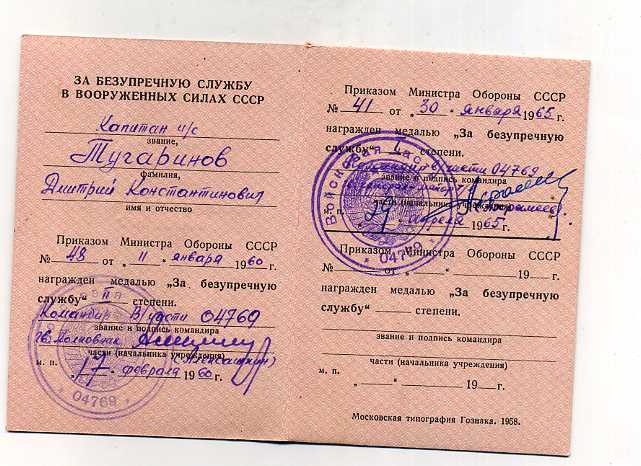 ЗА БЕЗУПРЕЧНУЮ СЛУЖБУ
В ВООРУЖЕННЫХ СИЛАХ СССР
Капитан и/с
звание,
Тугаринов
фамилия,
Дмитрий Константинович
имя и отчество
Приказом Министра Обороны СССР
№ 48 от „11“ января 1960 г.
награжден медалью „За безупречную
службу“ II степени.
Командир В/части 04769
звание и подпись командира
гв. полковник
части (начальника учреждения)
м. п. „17“ февраля 1960 г.
04769
Приказом Министра Обороны СССР
№ 41 от „30“ января 1965 г.
награжден медалью „За безупречную
службу“ I степени.
Командир В/части 04769
звание и подпись командира
генерал-майор
части (начальника учреждения)
м. п. „29“ апреля 1965 г.
Войсковая часть
04769
Приказом Министра Обороны СССР
№ от „ “ 19 г.
награжден медалью „За безупречную
службу“ степени.
звание и подпись командира
части (начальника учреждения)
м. п. „ “ 19 г.
Московская типография Гознака. 1958.